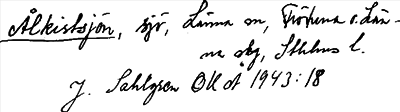 Ålkistsjön, sjö, Länna sn, Frötuna o. Län-
na skg, Sthlms l.
J. Sahlgren OUÅ 1943:18